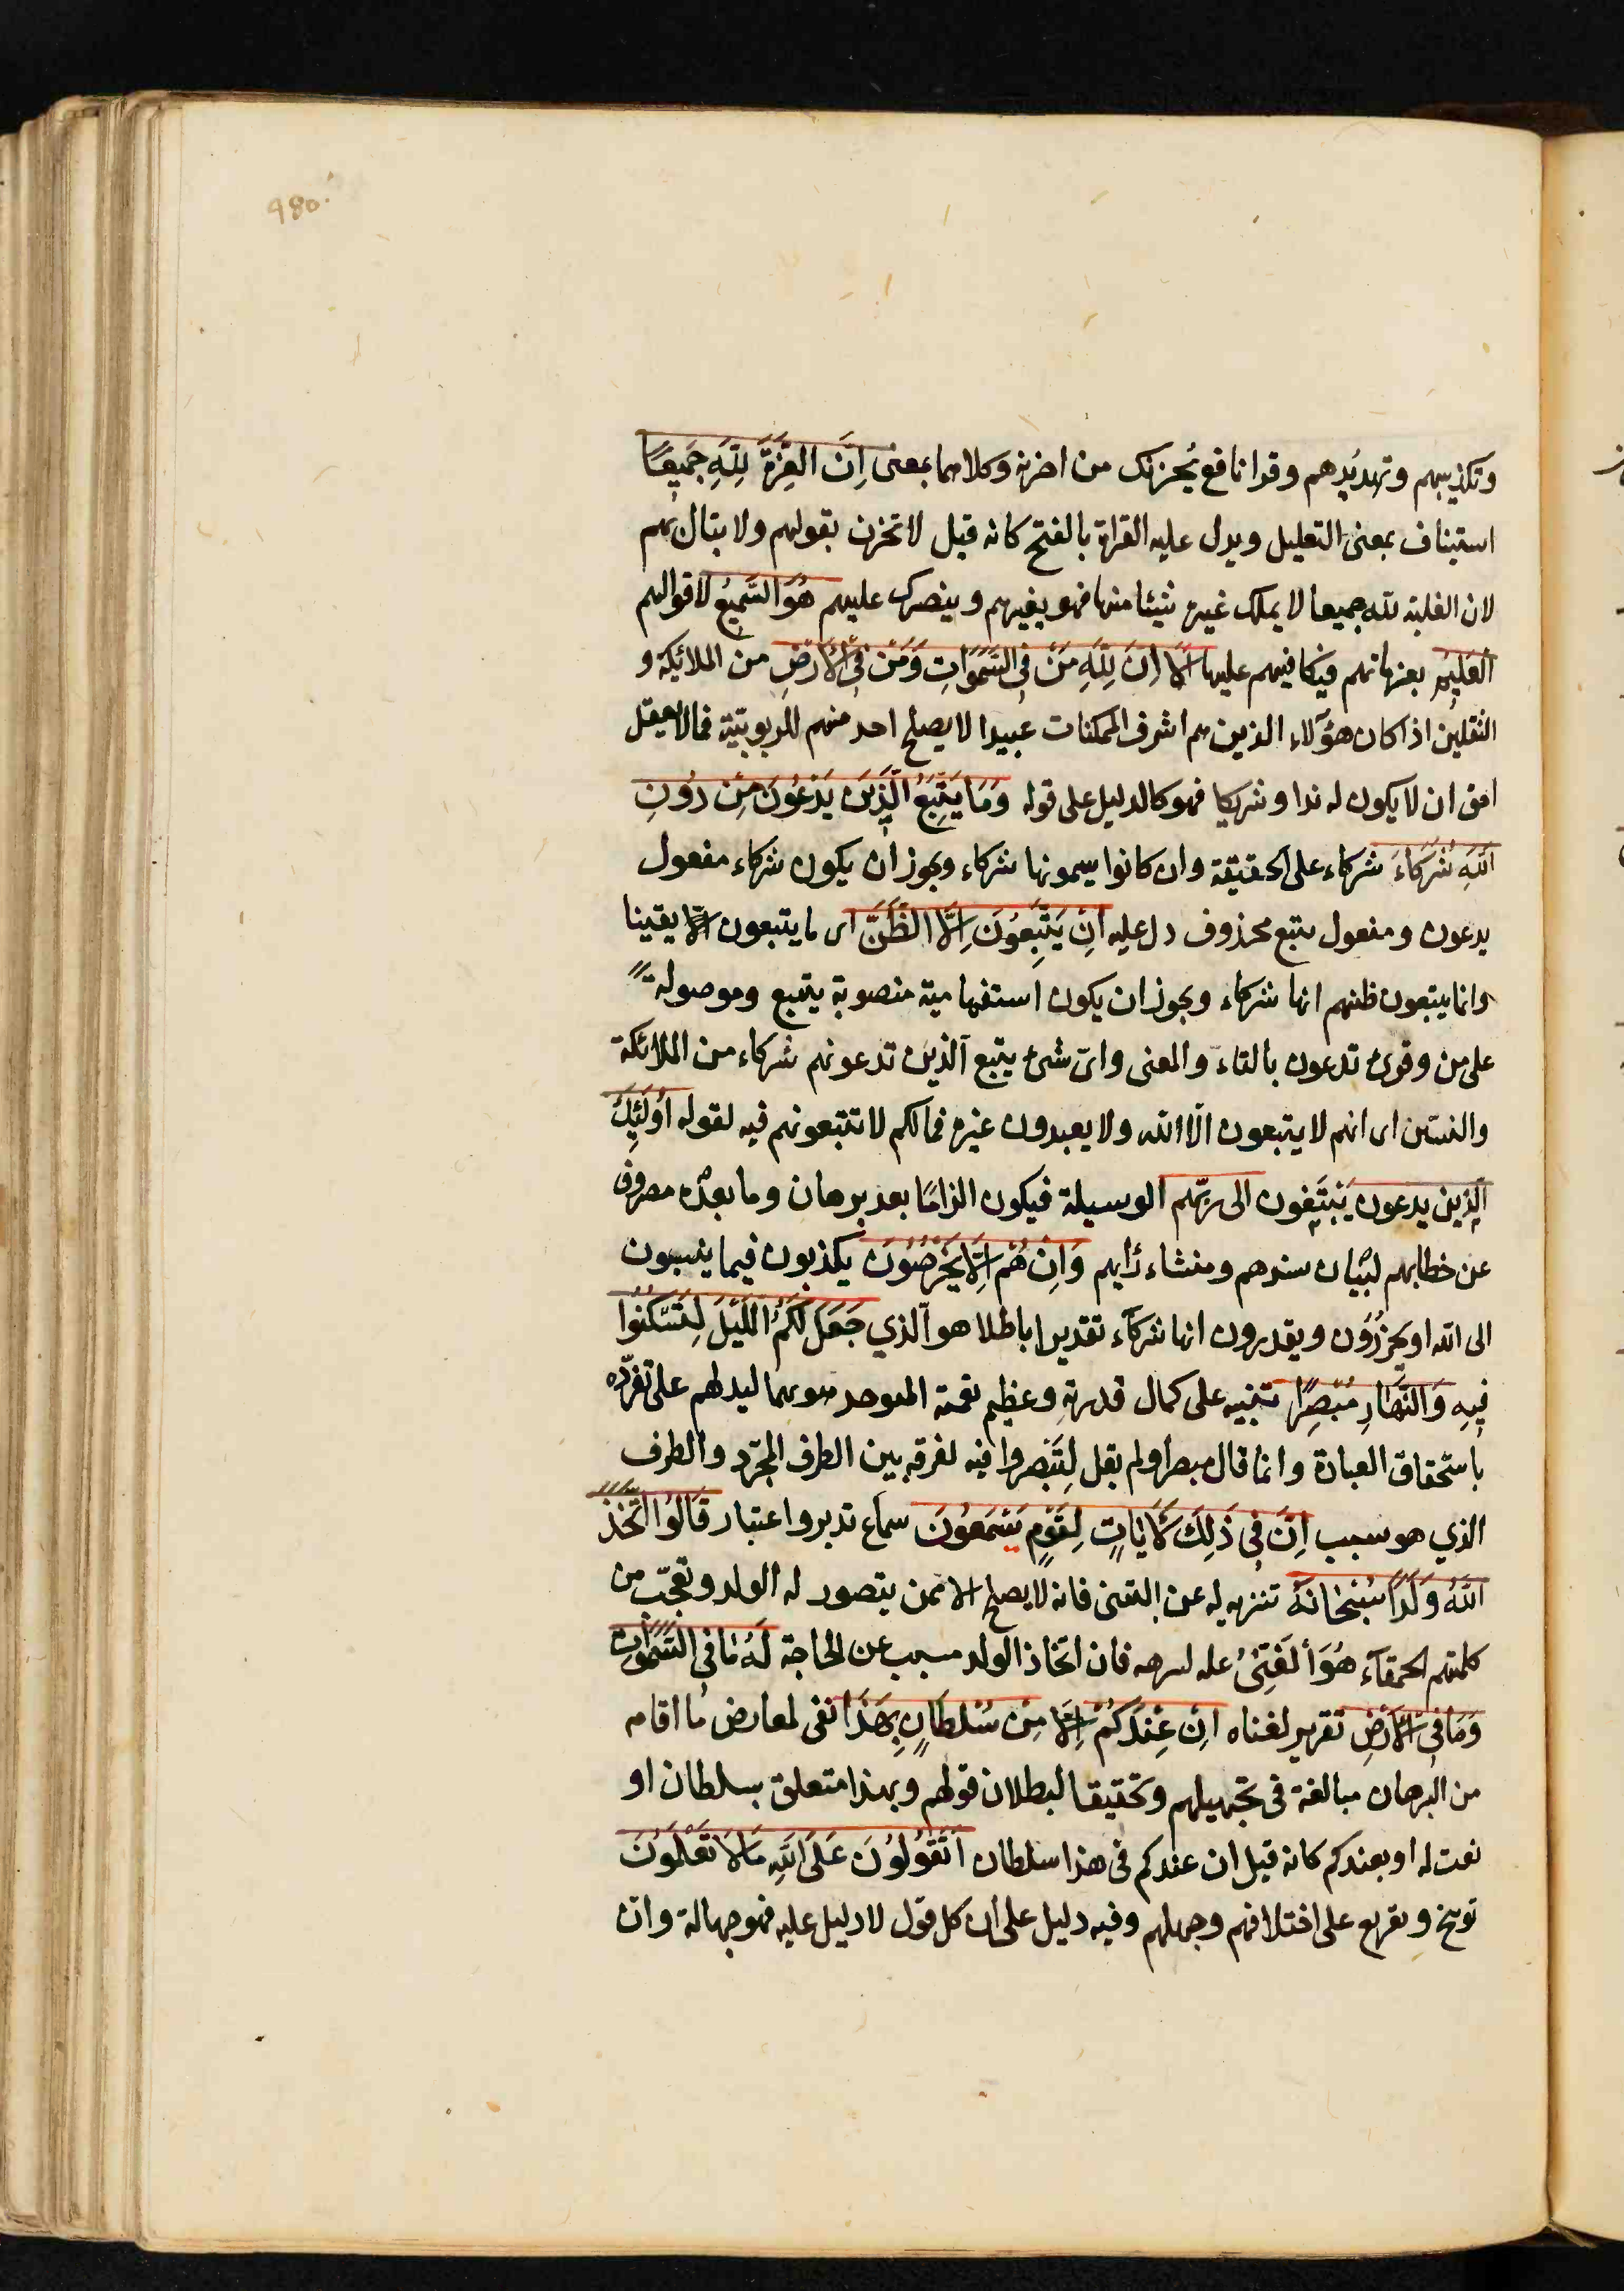 980.
وتكذيبهم وتهديدهم وقرا نافع يُحزنك من احزنه وكلاهما بمعنى اِنَّ العِزَّةَ لِلّٰهِ جَمِيعًا
استيناف بمعنى التعليل ويدل عليه القراة بالفتح كانه قيل لا تحزن بقولهم ولا تبال بهم
لان الغلبة لله جميعا لا يملك غيره شيئا منها فهو يقهرهم وينصرك عليهم هُوَ السَّمِيعُ لاقوالهم
العَلِيمُ بعزماتهم فيكافيهم عليها اَلَا اِنَّ لِلّٰهِ مَنْ فِي السَّمَوَاتِ وَمَنْ فِي الْاَرْضِ من الملائكة و
الثقلين اذا كان هؤلاء الذين هم اشرف الممكنات عبيدا لا يصلح احد منهم للربوبية فما لا يعقل
احق ان لا يكون له ندا وشريكا فهو كالدليل على قوله وَمَا يَتَّبِعُ الَّذِينَ يَدْعُونَ مِنْ دُونِ
اللّٰهِ شُرَكَاءَ شركاء على الحقيقة وان كانوا يسمونها شركاء ويجوز ان يكون شركاء مفعول
يدعون ومفعول يتبع محذوف دل عليه اِنْ يَتَّبِعُونَ اِلَّا الظَّنَّ اى ما يتبعون الا يقينا
وانما يتبعون ظنهم انها شركاء ويجوز ان يكون استفهامية منصوبة يتبع وموصولة
على من وقرئ تدعون بالتاء والمعنى واىّ شئ يتبع الذين تدعونهم شركاء من الملائكة
والنبيين اى انهم لا يتبعون الّا الله ولا يعبدون غيره فمالكم لا تتبعونهم فيه لقوله اُولٰئِكَ
الذين يدعون يَبْتَغون الى ربّهم الوسيلة فيكون الزامًا بعد برهان وما بعده مصروف
عن خطابهم لبيان سندهم ومنشاء رأيهم وَاِنْ هُمْ اِلَّا يَخْرُصُونَ يكذبون فيما ينسبون
الى الله او يحزرُون ويقدرون انها شركآء تقديرا باطلا هو الَّذي جَعَلَ لَكُمُ اللَّيْلَ لِتَسْكُنُوا
فِيهِ وَالنَّهَارِ مُبْصِرًا تنبيه على كمال قدرته وعظيم نعمته المتوحد هو بهما ليدلهم على تفرّده
باستحقاق العبادة وانما قال مبصرا ولم يقل لِتُبْصِروا فيه لفرقه بين الظرف المجرّد والظرف
الذي هو سبب اِنَّ فِي ذٰلِكَ لَاٰيَاتٍ لِقَوْمٍ يَسْمَعُونَ سماع تدبر واعتبار قَالُوا اتَّخَذَ
اللّٰهُ وَلَدًا سُبْحَانَهُ تنزيه له عن التبنى فانه لا يصلح الا ممن يتصور له الولد وتعجّب من
كلمتهم الحمقآء هُوَ الْغَنِيُّ علة لتنزهه فان اتخاذ الولد مسبب عن الحاجة لَهُ مَا فِي السَّمَوَاتِ
وَمَا فِي الْاَرْضِ تقرير لغناه اِنْ عِنْدَكُمْ اِلَّا مِنْ سُلْطَانٍ بِهٰذَا نفى لمعارض ما اقامه
من البرهان مبالغة فى تجهيلهم وتحقيقا لبطلان قولهم وبهذا متعلق بسلطان او
نعت له او بعندكم كانه قيل ان عندكم فى هذا سلطان اَتَقُولُونَ عَلَى اللّٰهِ مَا لَا تَعْلَمُونَ
توبيخ وتقريع على اختلافهم وجهلهم وفيه دليل على ان كل قول لا دليل عليه فهو جهالة وان